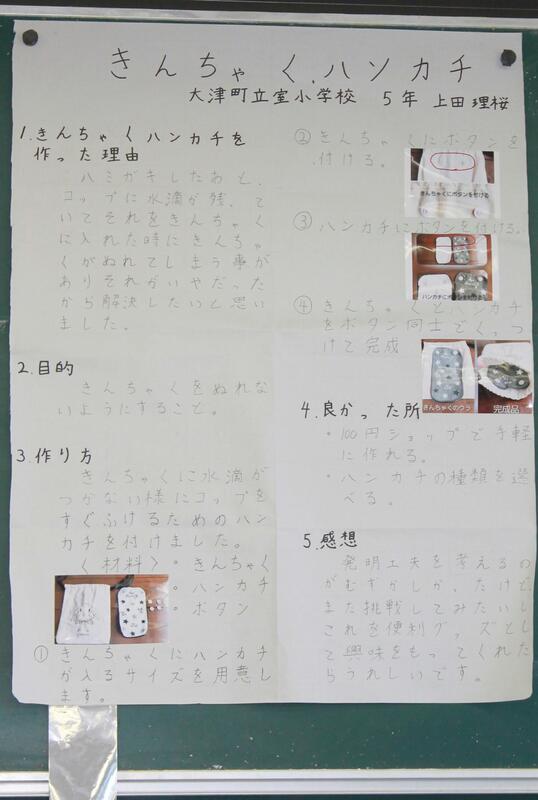 きんちゃく.ハンカチ
大津町立室小学校 5年 上田理桜
1.きんちゃくハンカチを
作った理由
ハミガキしたあと、
コップに水滴が残って
いてそれをきんちゃく
に入れた時にきんちゃ
くがぬれてしまう事が
ありそれがいやだった
から解決したいと思い
ました。
2.目的
きんちゃくをぬれな
いようにすること。
3.作り方
きんちゃくに水滴が
つかない様にコップを
すぐふけるためのハン
カチを付けました。
〈材料〉・きんちゃく
・ハンカチ
・ボタン
①きんちゃくにハンカチ
が入るサイズを用意し
ます。
②きんちゃくにボタンを
付ける。
きんちゃくにボタンを付ける
③ハンカチにボタンを付ける。
ハンカチにボタンを付ける
④きんちゃくとハンカチ
をボタン同士でくっつ
けて完成
きんちゃくのウラ
完成品
4.良かった所
・100円ショップで手軽
に作れる。
・ハンカチの種類を選
べる。
5.感想
発明工夫を考えるの
がむずかしかったけど
また挑戦してみたいし
これを便利グッズとし
て興味をもってくれた
らうれしいです。